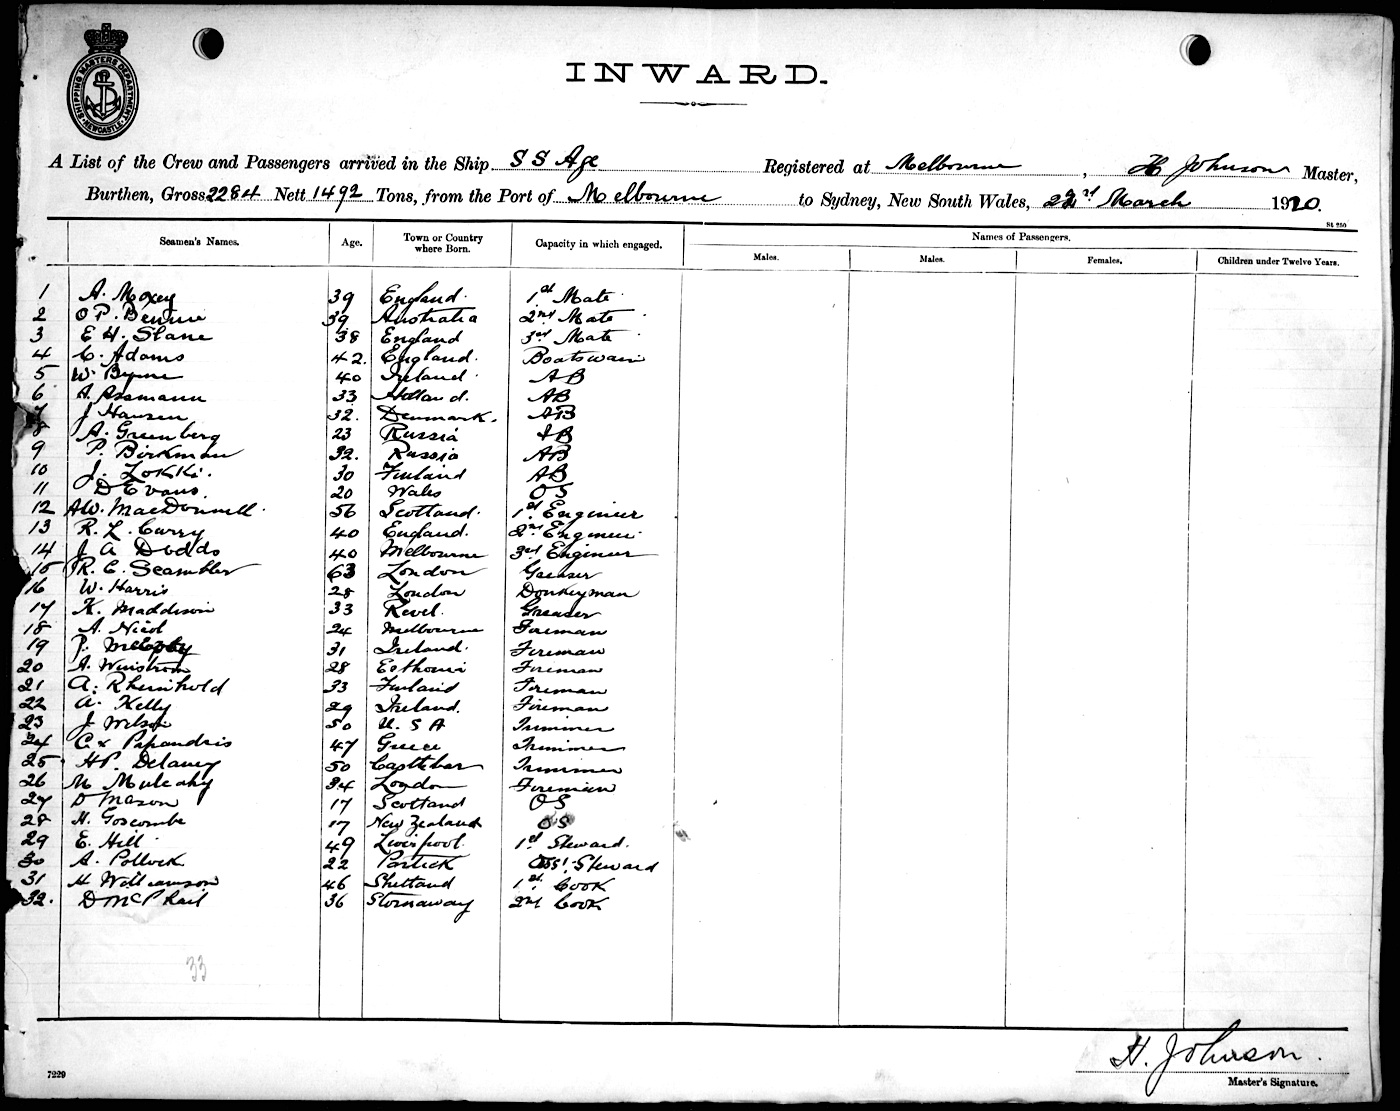 SHIPPING MASTERS DEPARTMENT
NEWCASTLE
INWARD.
A List of the Crew and Passengers arrived in the Ship S S Age Registered at Melbourne, H Johnson Master,
Burthen, Gross 2284 Nett 1492 Tons, from the Port of Melbourne to Sydney, New South Wales, March 1920.
St 750
Seamen's Names. Age. Town or Country where Born. Capacity in which engaged. Names of Passengers.
Males. Males. Females. Children under Twelve Years.
1 A. Moxey 39 England 1st Mate
2 O P. Bennie 39 Australia 2nd Mate
3 E H. Slane 38 England 3rd Mate
4 C. Adams 42. England. Boatswain
5 W. Byrne 40 Ireland AB
6 A. Assmann 33 Holland. AB
7 J Hansen 32. Denmark. AB
8 A. Greenberg 23 Russia AB
9 P. Birkman 32. Russia AB
10 J. Lokki. 30 Finland AB
11 D Evans. 20 Wales OS
12 AW. MacDonnell 56 Scotland. 1st Engineer
13 R. L. Curry 40 England. 2nd Engineer
14 J A Dodds 40 Melbourne 3rd Engineer
15 R. C. Scambler 63 London Greaser
16 W. Harris 28 London Donkeyman
17 K. Maddison 33 Revel. Greaser
18 A. Nicol 24 Melbourne Fireman
19 P. 31 Ireland. Fireman
20 A. Winstrom 28 Esthonia Fireman
21 A. Rheinhold 33 Finland Fireman
22 A. Kelly 29 Ireland. Fireman
23 J Wilson 50 U. S A Trimmer
24 C x Papandris 47 Greece Trimmer
25 HP. Delaney 50 Castlebar Trimmer
26 M Mulcahy 34 London Fireman
27 D Mason 17 Scotland OS
28 H. Goscombe 17 New Zealand OS
29 E. Hill 49 Liverpool. 1st Steward.
30 A. Pollock 22 Partick Asst. Steward
31 H Williamson 46 Shetland 1st. Cook
32. D McPhail 36 Stornaway 2nd Cook
33
H. Johnson.
7229 Master's Signature.